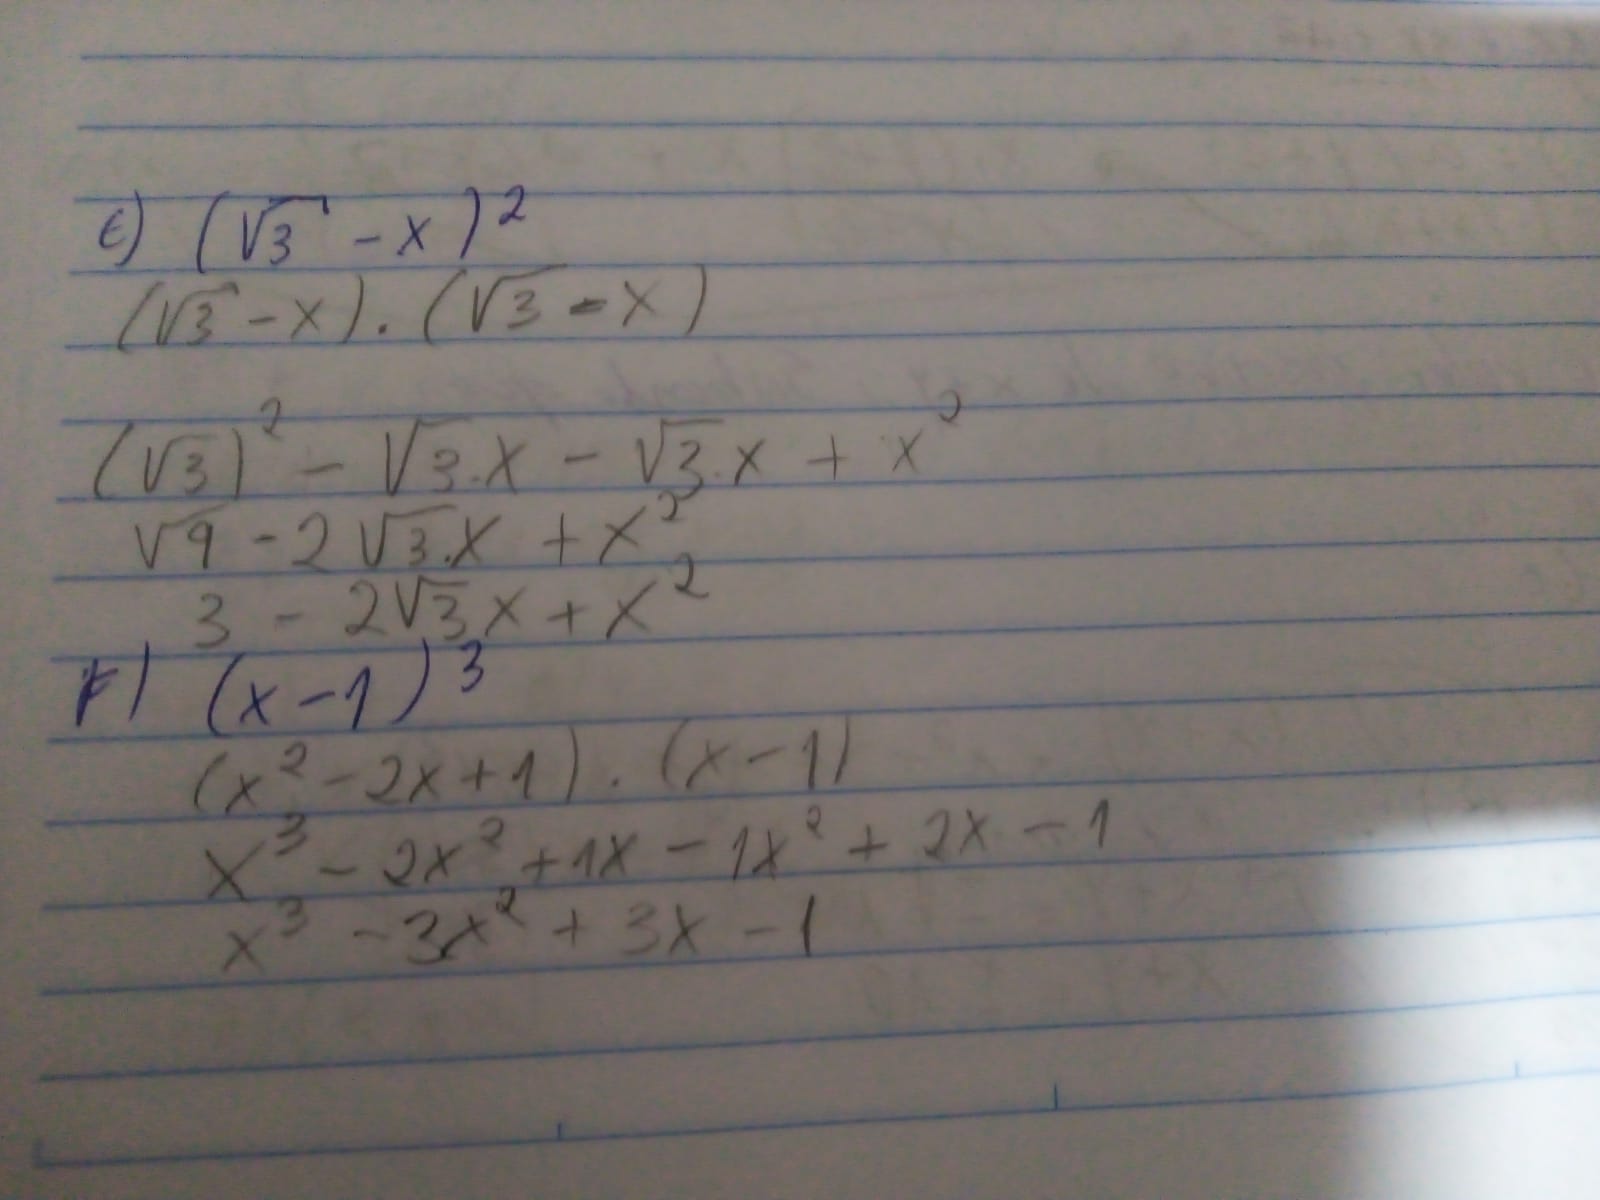 E) (√3 - x)²
(√3 - x) . (√3 - x)
(√3)² - √3.x - √3.x + x²
√9 - 2√3.x + x²
3 - 2√3x + x²
F) (x-1)³
(x² - 2x + 1) . (x - 1)
x³ - 2x² + 1x - 1x² + 2x - 1
x³ - 3x² + 3x - 1